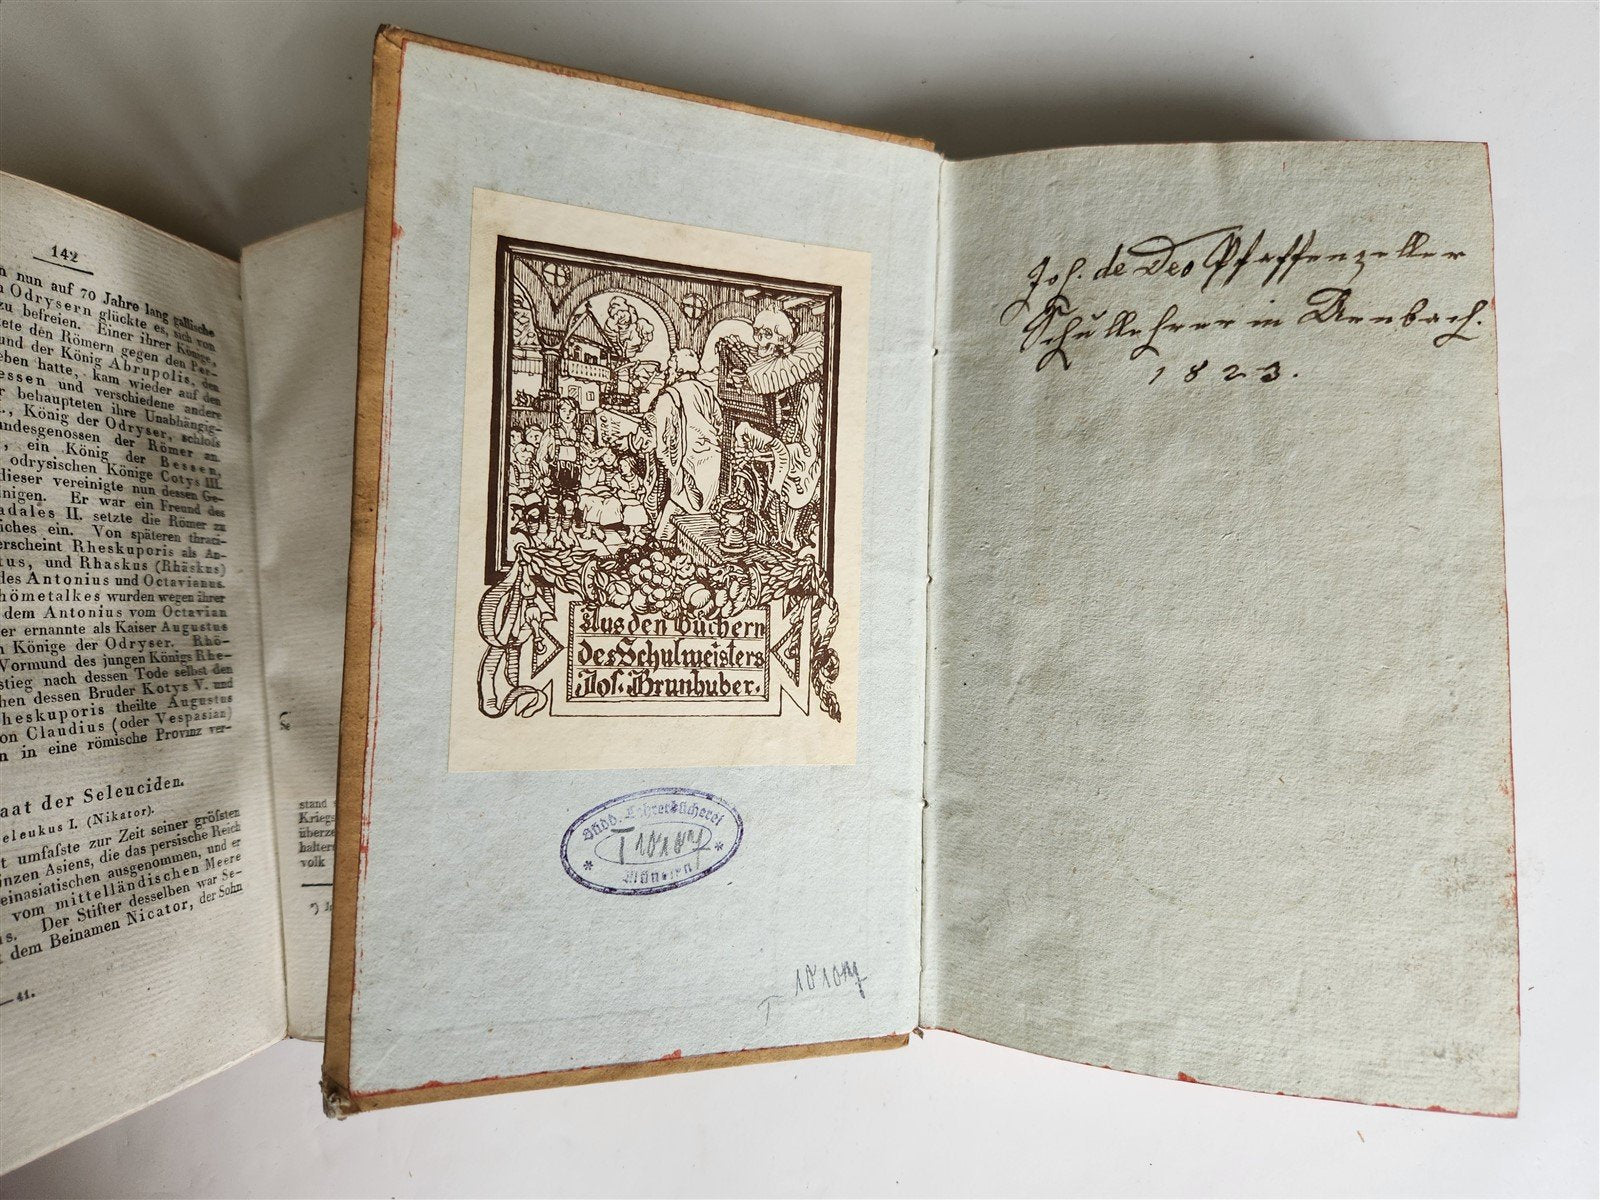 142
n nun auf 70 Jahre lang gallische
Odrysern glückte es, sich von
zu befreien. Einer ihrer Könige,
tete den Römern gegen den Per-
und der König Abrupolis, den
eben hatte, kam wieder auf den
essen und verschiedene andere
r behaupteten ihre Unabhängig-
., König der Odryser, schloſs
undesgenossen der Römer an.
, ein König der Bessen,
odrysischen Könige Cotys III.
dieser vereinigte nun dessen Ge-
nigen. Er war ein Freund des
adales II. setzte die Römer zu
iches ein. Von späteren thraci-
erscheint Rheskuporis als An-
tus, und Rhaskus (Rhäskus)
des Antonius und Octavianus.
hömetalkes wurden wegen ihrer
dem Antonius vom Octavian
er ernannte als Kaiser Augustus
n Könige der Odryser. Rhö-
Vormund des jungen Königs Rhe-
stieg nach dessen Tode selbst den
chen dessen Bruder Kotys V. und
heskuporis theilte Augustus
on Claudius (oder Vespasian)
n in eine römische Provinz ver-
aat der Seleuciden.
eleukus I. (Nikator).
t umfaſste zur Zeit seiner gröſsten
nzen Asiens, die das persische Reich
einasiatischen ausgenommen, und er
vom mittelländischen Meere
s. Der Stifter desselben war Se-
t dem Beinamen Nicator, der Sohn
—41.
stand
Kriegs
überze
halter
volk
Aus den Büchern
des Schulmeisters
Jos. Brunhuber.
Südd. Lehrerbücherei
München
Joh. de Deo Pfaffenzeller
Schullehrer in Arnbach.
1823.